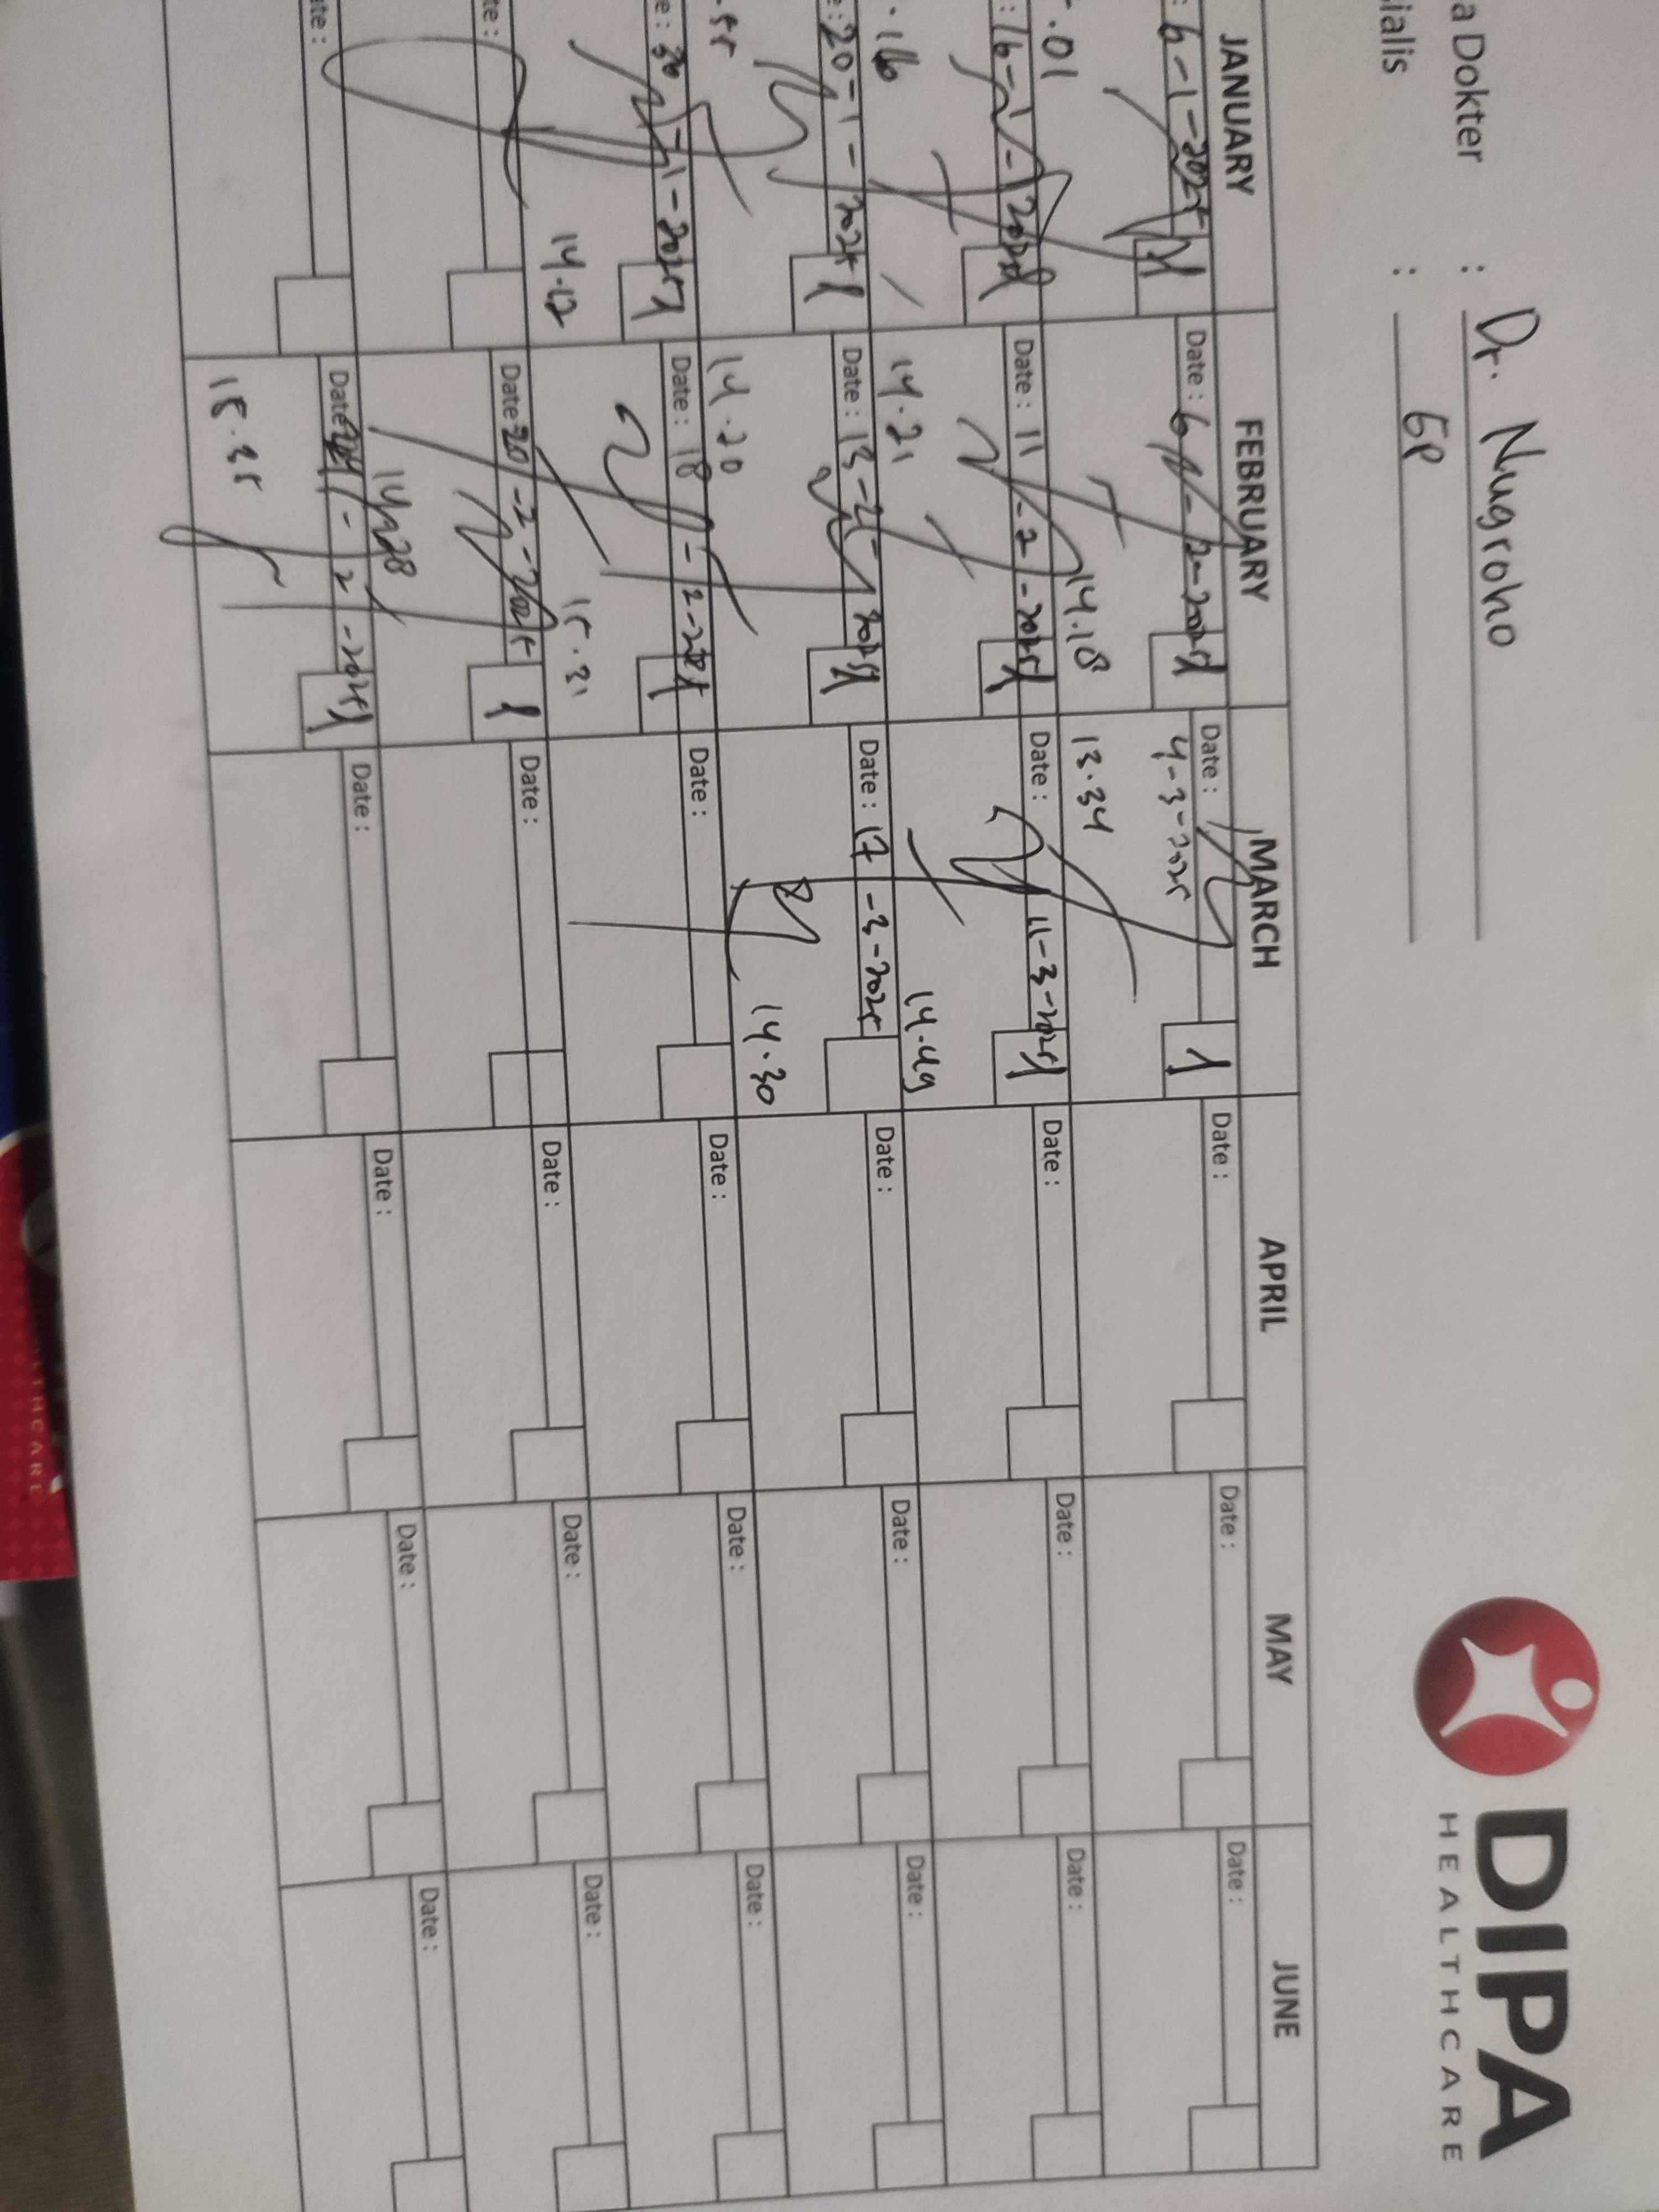 a Dokter : Dr. Nugroho
ialis : GP
DIPA
HEALTHCARE
JANUARY FEBRUARY MARCH APRIL MAY JUNE
: 6-1-2025 Date : 6-2-2025 Date : Date : Date : Date :
4-3-2025
.01 14.18 13.34
: 16-1-2025 Date : 11-2-2025 Date : 11-3-2025 Date : Date : Date :
.16 14.21 14.49
e : 20-1-2025 Date : 13-2-2025 Date : 17-3-2025 Date : Date : Date :
14.20 14.30
e : 30-1-2025 Date : 18-2-2025 Date : Date : Date : Date :
14.12 15.31
te : Date : 20-2-2025 Date : Date : Date : Date :
14.28
ate : Date : -2-2025 Date : Date : Date : Date :
15.35
HCARE